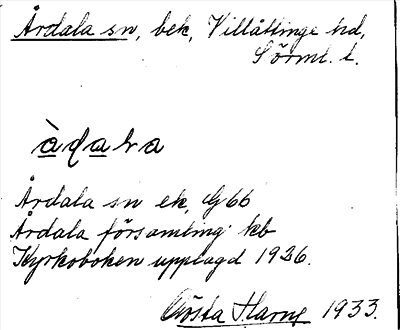 Årdala sn, bek, Villåttinge hd,
Sörml. l.
Årdala sn ek, G66
Årdala församling kb
Kyrkoboken upplagd 1926.
Gösta Harne 1933.